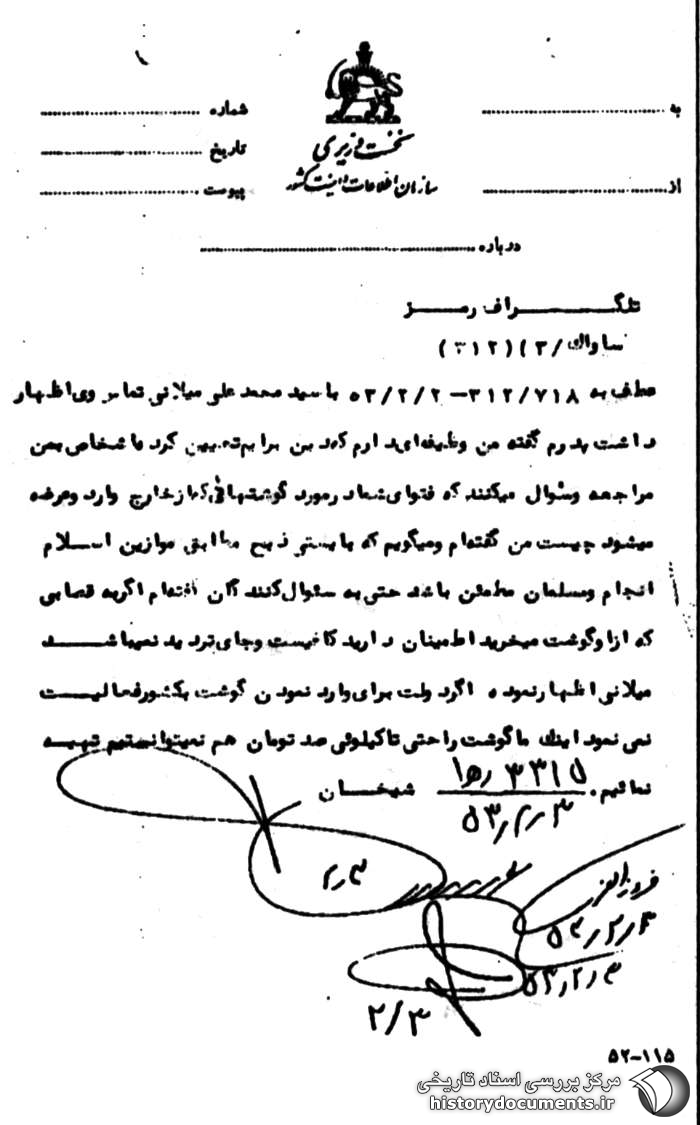 به
شماره
نخست وزیری
تاریخ
سازمان اطلاعات و امنیت کشور
از
پیوست
درباره
تلگـــراف رمـــز
ساواك/۳)(۳۱۲)
عطف به ۳۱۲/۷۱۸ – ۵۳/۲/۲ با سید محمد علی میلانی تماس وی اظهار
داشت پدرم گفته من وظیفه‌ای دارم که دین برایم تعیین کرده اشخاص بمن
مراجعه وسئوال میکنند که فتوای شما در مورد گوشتهائی که از خارج وارد وعرضه
میشود چیست من گفته‌ام ومیگویم که بایستی ذبح مطابق موازین اسلام
انجام ومسلمان مطمئن باشد حتی به سئوال کنندگان گفته‌ام اگر به قصابی
که از او گوشت میخرید اطمینان دارید کافیست وجای تردید نمیباشد
میلانی اظهار نموده اگر دولت برای وارد نمودن گوشت بکشور فعالیت
نمی نمود اینك ما گوشت را حتی تا کیلوئی صد تومان هم نمیتوانستیم تهیه
نمائیم. شیخان
۵۳٫۲٫۳
۳٫۲
۵۳٫۲٫۴
۵۳٫۲٫۳
۲/۳
۵۲-۱۱۵
مرکز بررسی اسناد تاریخی
historydocuments.ir